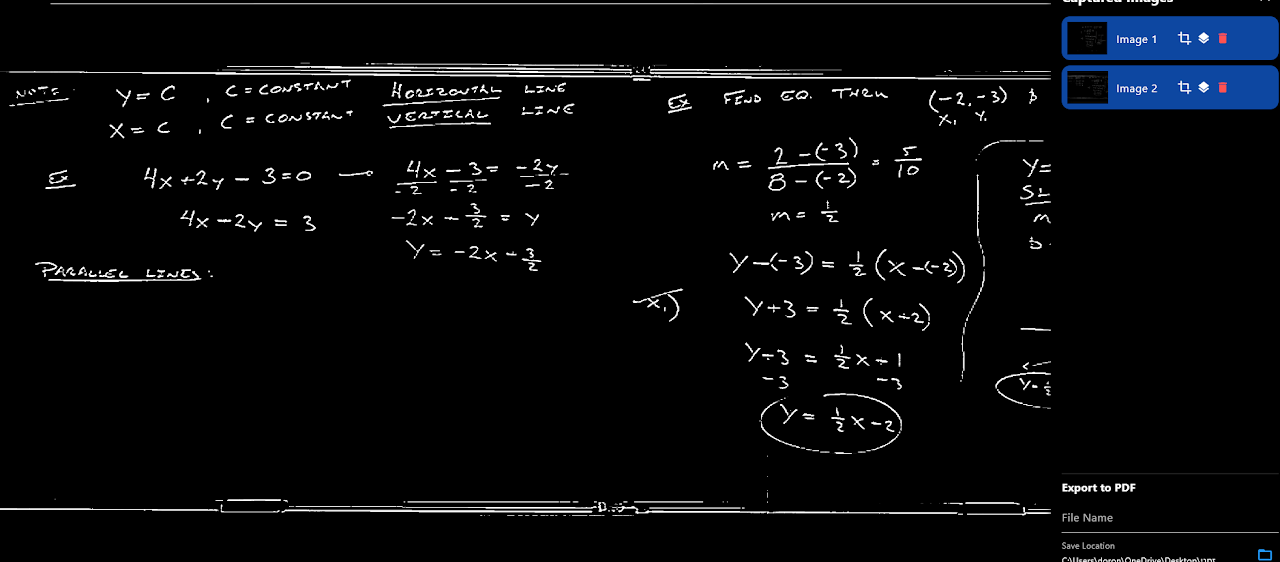 Captured Images
Image 1
Image 2
NOTE: Y = C , C = CONSTANT HORIZONTAL LINE
X = C , C = CONSTANT VERTICAL LINE
EX 4x+2y-3=0 → 4x-3= -2y
-2 -2 -2
4x-2y = 3
-2x - 3/2 = y
Y = -2x - 3/2
PARALLEL LINES:
EX FIND EQ. THRU (-2,-3) &
X₁ Y₁
m = 2-(-3) / 8-(-2) = 5/10
m = 1/2
Y-(-3) = 1/2 (x-(-2))
x₁)
Y+3 = 1/2 (x+2)
Y-3 = 1/2x-1
-3 -3
Y = 1/2x-2
Y=
m
Y=1/2
Export to PDF
File Name
Save Location
C:\Users\doron\OneDrive\Desktop\